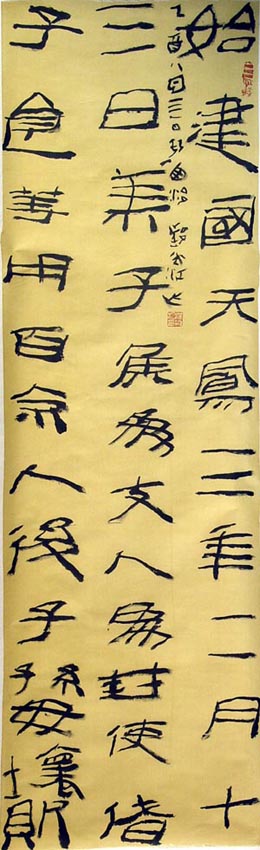 始建國天鳳三年二月十
三日萊子侯為支人為封使偖
子食等用百余人後子孫毋壞敗
乙酉八月